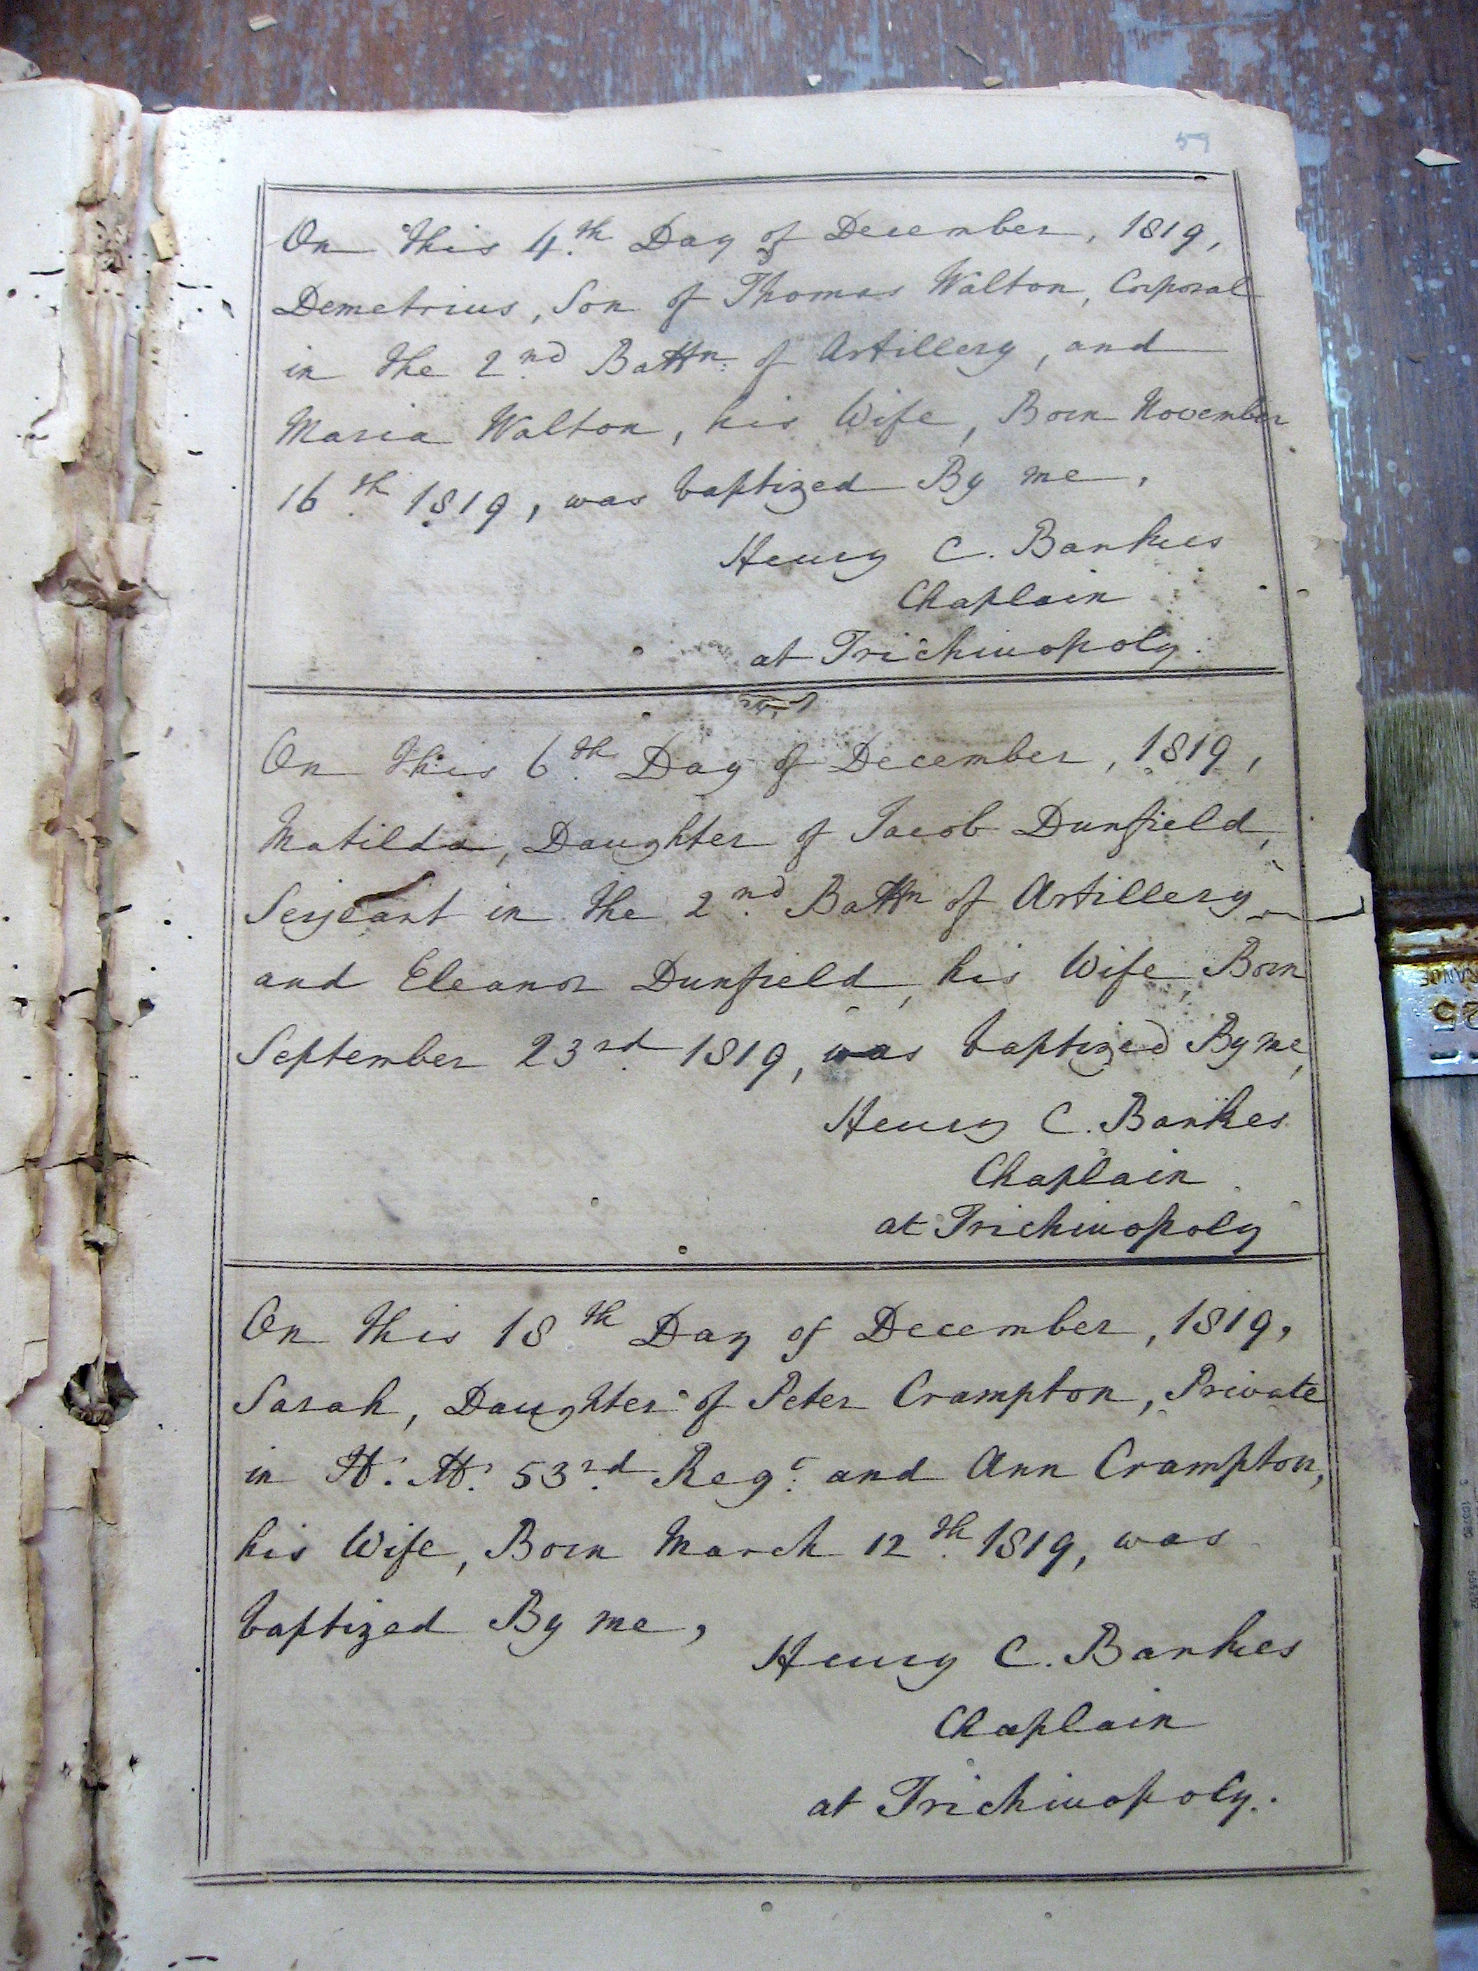 59
On this 4th Day of December, 1819,
Demetrius, Son of Thomas Walton, Corporal
in the 2nd Battn. of Artillery, and
Maria Walton, his Wife, Born November
16th 1819, was baptized By me,
Henry C. Bankes
Chaplain
at Trichinopoly.
On this 6th Day of December, 1819,
Matilda, Daughter of Jacob Dunfield,
Serjeant in the 2nd Battn of Artillery
and Eleanor Dunfield, his Wife, Born
September 23rd 1819, was baptized By me,
Henry C. Bankes
Chaplain
at Trichinopoly
On this 18th Day of December, 1819,
Sarah, Daughter of Peter Crampton, Private
in H. M. 53rd Regt. and Ann Crampton,
his Wife, Born March 12th 1819, was
baptized By me,
Henry C. Bankes
Chaplain
at Trichinopoly.
25